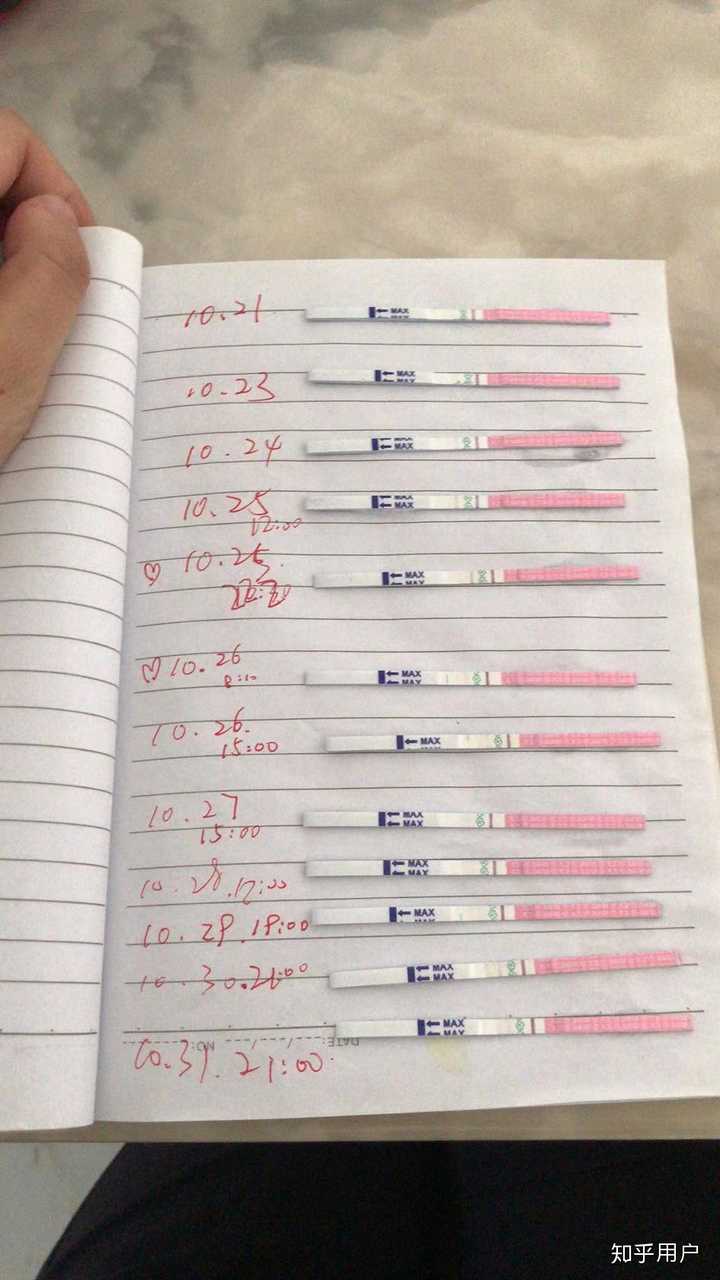 10.21
MAX
MAX
10.23
MAX
MAX
10.24
MAX
MAX
10.25
12:00
MAX
MAX
♡ 10.25.
MAX
MAX
♡ 10.26
8:10
MAX
MAX
10.26.
15:00
MAX
10.27
15:00
MAX
MAX
10.28.12:00
MAX
MAX
10.29.19:00
MAX
10.30.21:00
MAX
MAX
10.31.21:00
MAX
MAX
DATE: NO:
知乎用户